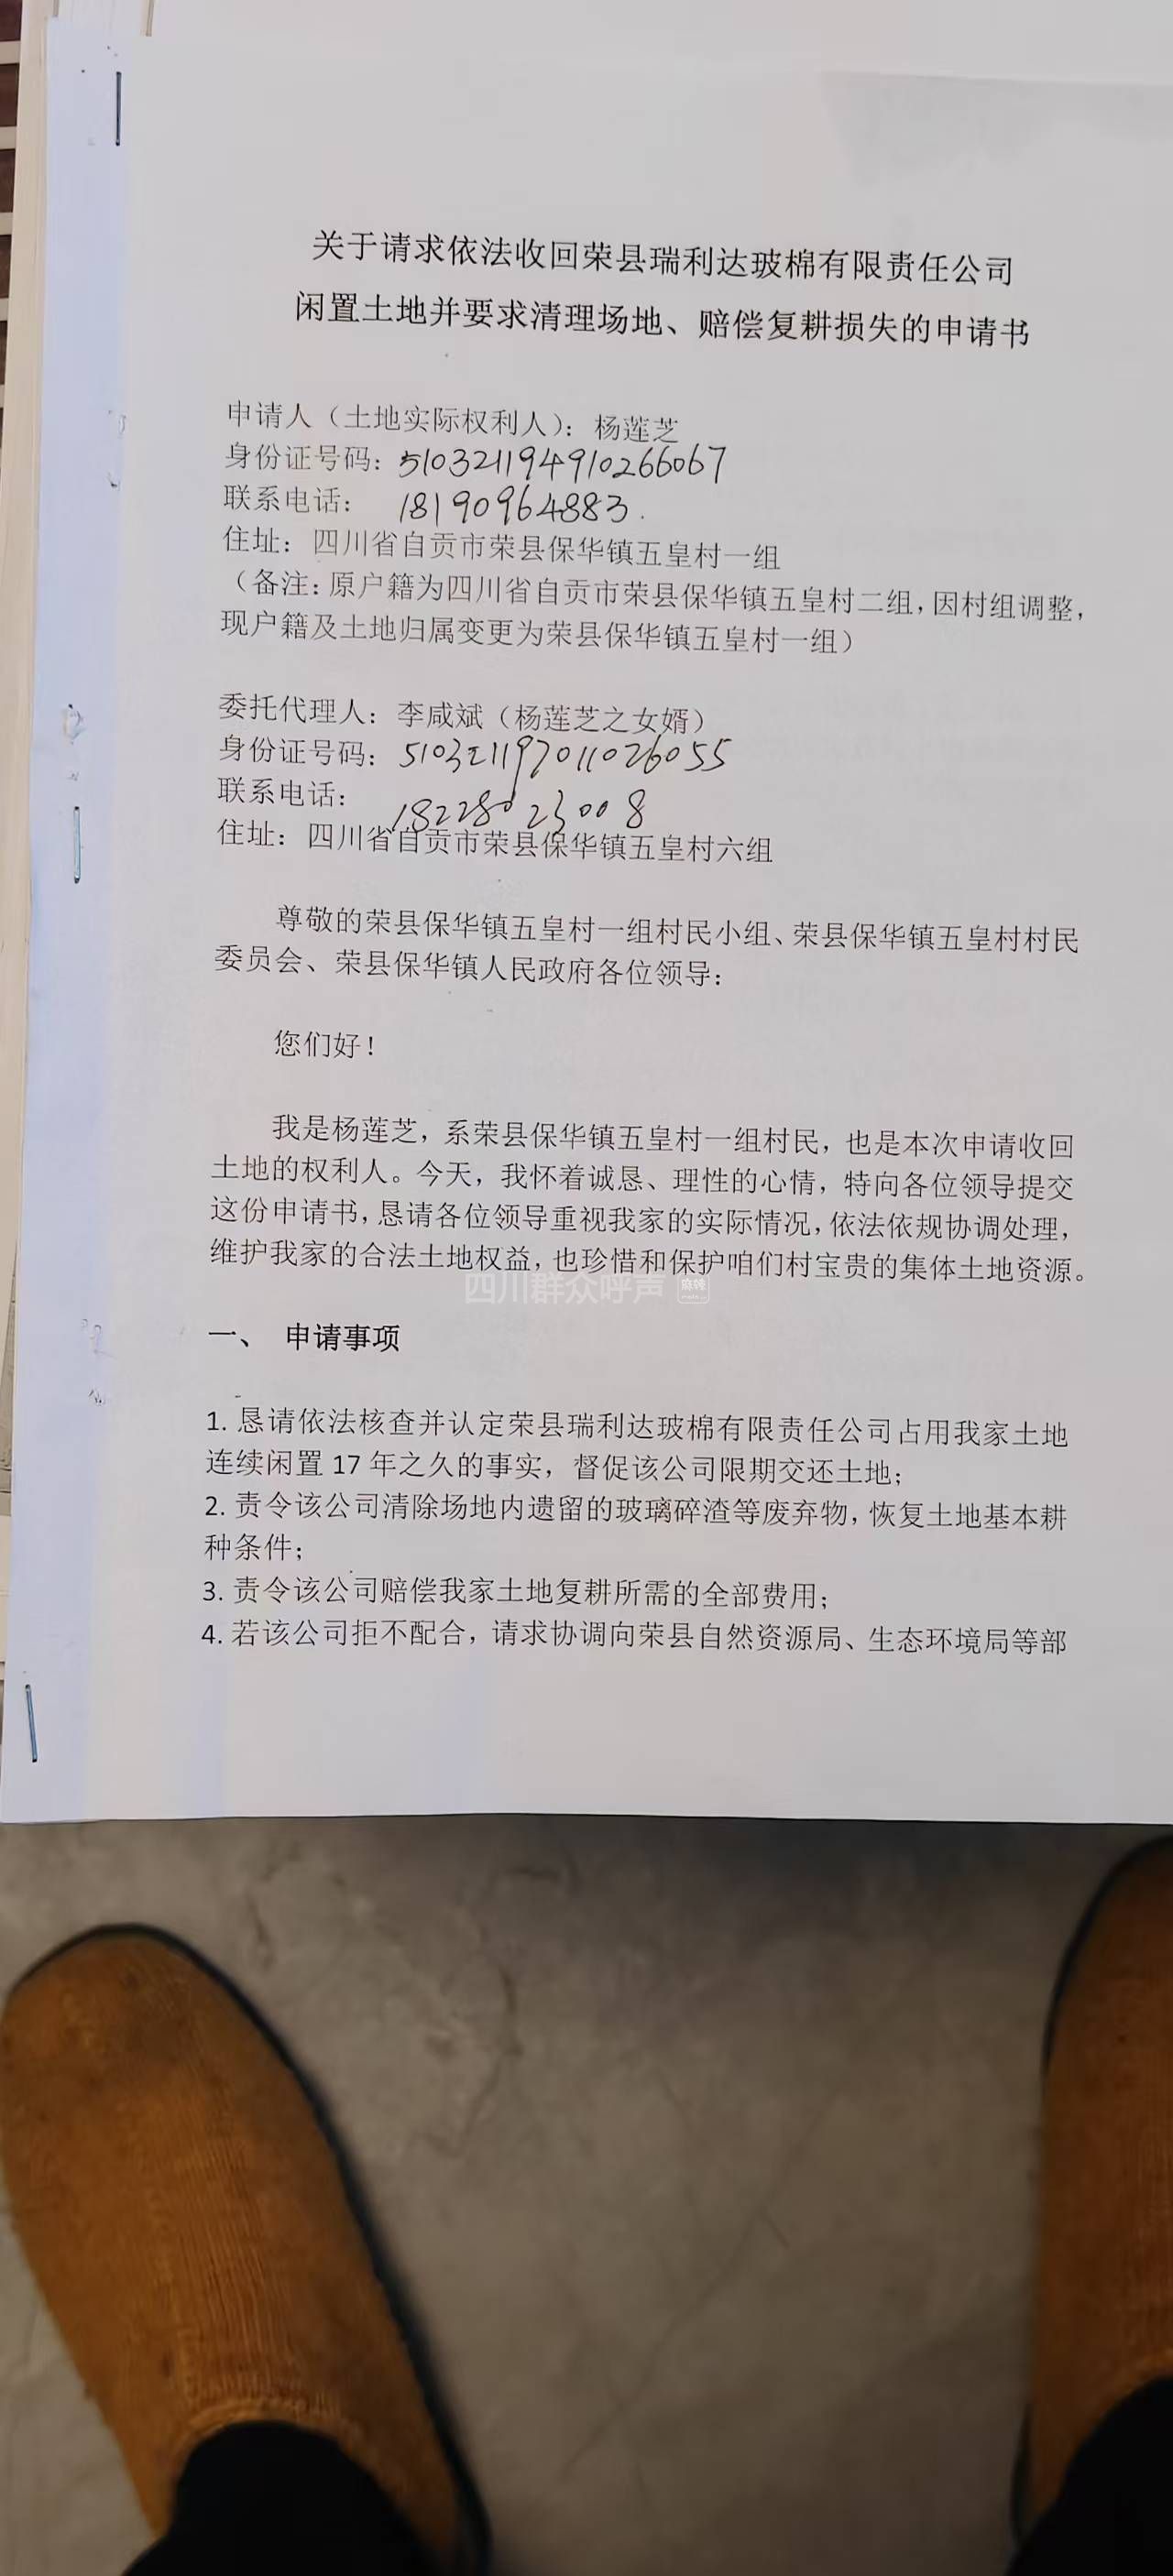 关于请求依法收回荣县瑞利达玻棉有限责任公司
闲置土地并要求清理场地、赔偿复耕损失的申请书
申请人（土地实际权利人）：杨莲芝
身份证号码：510321194910266067
联系电话： 18190964883.
住址：四川省自贡市荣县保华镇五皇村一组
（备注：原户籍为四川省自贡市荣县保华镇五皇村二组，因村组调整，
现户籍及土地归属变更为荣县保华镇五皇村一组）
委托代理人：李咸斌（杨莲芝之女婿）
身份证号码：510321197011026055
联系电话： 18228023008
住址：四川省自贡市荣县保华镇五皇村六组
尊敬的荣县保华镇五皇村一组村民小组、荣县保华镇五皇村村民
委员会、荣县保华镇人民政府各位领导：
您们好！
我是杨莲芝，系荣县保华镇五皇村一组村民，也是本次申请收回
土地的权利人。今天，我怀着诚恳、理性的心情，特向各位领导提交
这份申请书，恳请各位领导重视我家的实际情况，依法依规协调处理，
维护我家的合法土地权益，也珍惜和保护咱们村宝贵的集体土地资源。
四川群众呼声 麻辣
一、 申请事项
1. 恳请依法核查并认定荣县瑞利达玻棉有限责任公司占用我家土地
连续闲置 17 年之久的事实，督促该公司限期交还土地；
2. 责令该公司清除场地内遗留的玻璃碎渣等废弃物，恢复土地基本耕
种条件；
3. 责令该公司赔偿我家土地复耕所需的全部费用；
4. 若该公司拒不配合，请求协调向荣县自然资源局、生态环境局等部